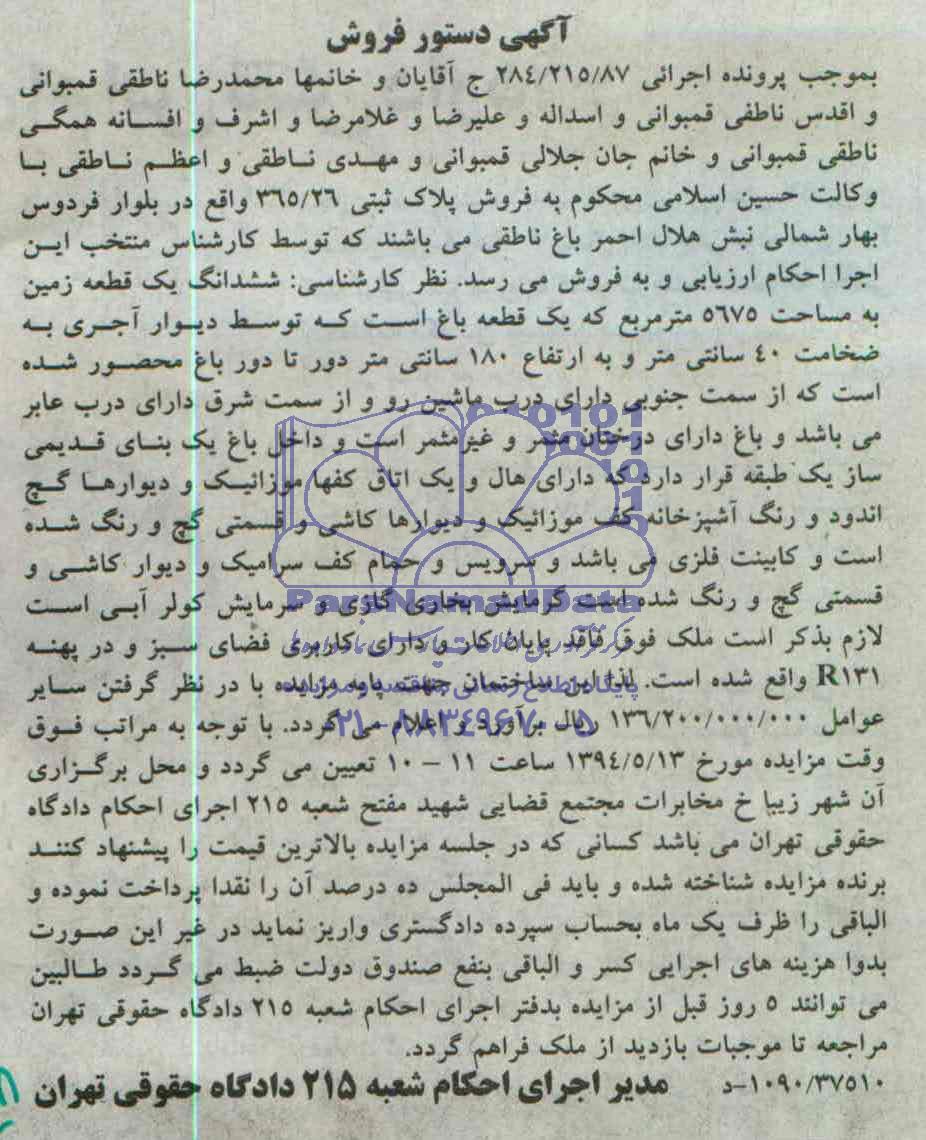 آگهی دستور فروش
بموجب پرونده اجرائی ۲۸٤/۲۱٥/۸۷ ج آقایان و خانمها محمدرضا ناطقی قمبوانی
و اقدس ناطفی قمبوانی و اسداله و علیرضا و غلامرضا و اشرف و افسانه همگی
ناطقی قمبوانی و خانم جان جلالی قمبوانی و مهدی ناطقی و اعظم ناطقی با
وکالت حسین اسلامی محکوم به فروش پلاک ثبتی ۳٦٥/۲٦ واقع در بلوار فردوس
بهار شمالی نبش هلال احمر باغ ناطقی می باشند که توسط کارشناس منتخب این
اجرا احکام ارزیابی و به فروش می رسد. نظر کارشناسی: ششدانگ یک قطعه زمین
به مساحت ٥٦٧٥ مترمربع که یک قطعه باغ است که توسط دیوار آجری به
ضخامت ٤۰ سانتی متر و به ارتفاع ۱۸۰ سانتی متر دور تا دور باغ محصور شده
است که از سمت جنوبی دارای درب ماشین رو و از سمت شرق دارای درب عابر
می باشد و باغ دارای درختان مثمر و غیرمثمر است و داخل باغ یک بنای قدیمی
ساز یک طبقه قرار دارد که دارای هال و یک اتاق کفها موزائیک و دیوارها گچ
اندود و رنگ آشپزخانه کف موزائیک و دیوارها کاشی و قسمتی گچ و رنگ شده
است و کابینت فلزی می باشد و سرویس و حمام کف سرامیک و دیوار کاشی و
قسمتی گچ و رنگ شده است گرمایش بخاری گازی و سرمایش کولر آبی است
لازم بذکر است ملک فوق فاقد پایان کار و دارای کاربری فضای سبز و در پهنه
R۱۳۱ واقع شده است. لذا این ساختمان جهت پایه مزایده با در نظر گرفتن سایر
عوامل ۱۳٦/۲۰۰/۰۰۰/۰۰۰ ریال برآورد و اعلام می گردد. با توجه به مراتب فوق
وقت مزایده مورخ ۱۳۹٤/٥/۱۳ ساعت ۱۱ – ۱۰ تعیین می گردد و محل برگزاری
آن شهر زیبا خ مخابرات مجتمع قضایی شهید مفتح شعبه ۲۱٥ اجرای احکام دادگاه
حقوقی تهران می باشد کسانی که در جلسه مزایده بالاترین قیمت را پیشنهاد کنند
برنده مزایده شناخته شده و باید فی المجلس ده درصد آن را نقدا پرداخت نموده و
الباقی را ظرف یک ماه بحساب سپرده دادگستری واریز نماید در غیر این صورت
بدوا هزینه های اجرایی کسر و الباقی بنفع صندوق دولت ضبط می گردد طالبین
می توانند ٥ روز قبل از مزایده بدفتر اجرای احکام شعبه ۲۱٥ دادگاه حقوقی تهران
مراجعه تا موجبات بازدید از ملک فراهم گردد.
۱۰۹۰/۳۷٥۱۰-د مدیر اجرای احکام شعبه ۲۱۵ دادگاه حقوقی تهران